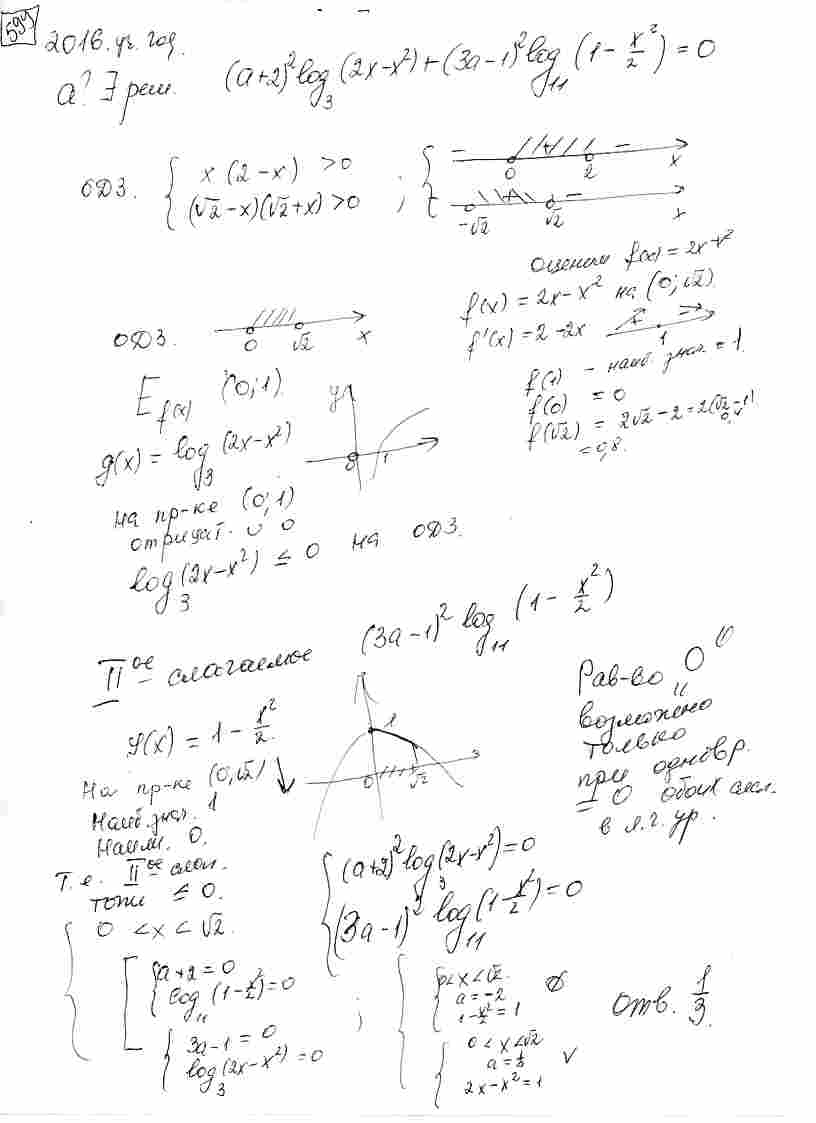 599
2016 уч. год.
a? ∃ реш. (a+2)² log₃ (2x-x²) + (3a-1)² log₁₁ (1 - x²/2) = 0
ОДЗ. { x (2-x) > 0 ; { − + −
0 2 x
(√2-x)(√2+x) > 0
-√2 √2 − x
Оценим f(x) = 2x-x²
f(x) = 2x-x² на (0; √2)
f'(x) = 2-2x
1
ОДЗ.
0 √2 x
f(1) - наиб. знач. = 1.
f(0) = 0
f(√2) = 2√2 - 2 = 2(√2-1)
= 0,8.
E f(x) (0; 1)
y
0 1
g(x) = log₃ (2x-x²)
на пр-ке (0; 1)
отрицат. ∪ 0
log₃ (2x-x²) ≤ 0 на ОДЗ.
II ое слагаемое (3a-1)² log₁₁ (1 - x²/2)
φ(x) = 1 - x²/2.
1
0 √2
На пр-ке (0, √2) ↓
Наиб. знач. 1
Наим. 0.
Т.е. II ое слаг.
тоже ≤ 0.
Рав-во 0
возможно
только
при одновр.
= 0 обоих слаг.
в л.ч. ур.
{ (a+2)² log₃ (2x-x²) = 0
(3a-1)² log₁₁ (1 - x²/2) = 0
{ 0 < x < √2.
[ { a+2 = 0
log₁₁ (1 - x²/2) = 0
{ 3a-1 = 0
log₃ (2x-x²) = 0
; { { 0 < x < √2.
a = -2
1 - x²/2 = 1
∅
{ 0 < x < √2
a = 1/3
2x-x² = 1
∨
Отв. 1/3.